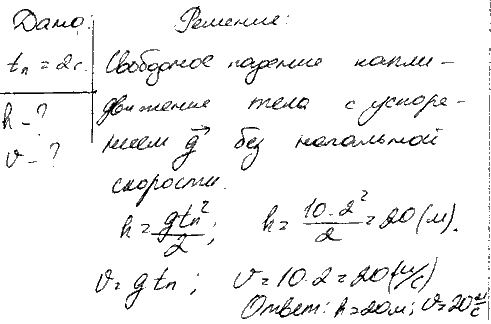 Дано: Решение:
tп = 2с. Свободное падение капли –
h – ? движение тела с ускоре-
v – ? нием g⃗ без начальной
скорости.
h = gtп²/2; h = 10·2²/2 = 20 (м).
v = gtп; v = 10·2 = 20 (м/с)
Ответ: h = 20 м; v = 20 м/с